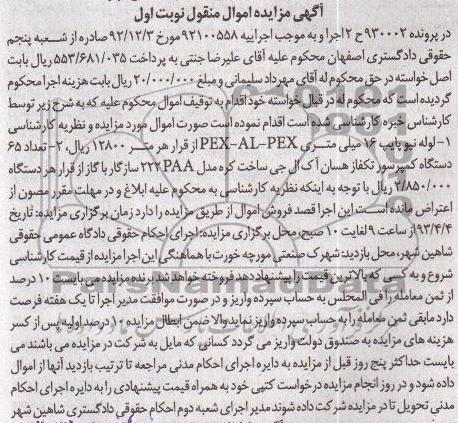 آگهی مزایده اموال منقول نوبت اول
در پرونده ۹۳۰۰۰۲ح ۲اجرا و به موجب اجراییه ۹۲۱۰۰۵۵۸مورخ ۹۲/۱۲/۳ صادره از شعبه پنجم
حقوقی دادگستری اصفهان محکوم علیه آقای علیرضا جنتی به پرداخت ۵۵۳/۶۸۱/۰۳۵ ریال بابت
اصل خواسته در حق محکوم له آقای مهرداد سلیمانی و مبلغ ۲۰/۰۰۰/۰۰۰ ریال بابت هزینه اجرا محکوم
گردیده است که محکوم له در قبال خواسته خود اقدام به توقیف اموال محکوم علیه که به شرح زیر توسط
کارشناس خبره کارشناسی شده است اقدام نموده است صورت اموال مورد مزایده و نظریه کارشناسی
۱-لوله نیو پایپ ۱۶ میلی متری PEX-AL-PEX از قرار هر متر ۱۲۸۰۰ ریال، ۲- تعداد ۶۵
دستگاه کمپرسور تکفاز همسان آک ال جی ساخت کره مدل ۲۲۲PAA سازگار با گاز از قرار هر دستگاه
۲/۸۵۰/۰۰۰ ریال با توجه به اینکه نظریه کارشناسی به محکوم علیه ابلاغ و در مهلت مقرر مصون از
اعتراض مانده است این اجرا قصد فروش اموال از طریق مزایده را دارد زمان برگزاری مزایده: تاریخ
۹۳/۴/۴ از ساعت ۹ لغایت ۱۰ صبح، محل برگزاری مزایده: اجرای احکام حقوقی دادگاه عمومی حقوقی
شاهین شهر، محل بازدید: شهرک صنعتی مورچه خورت با هماهنگی این اجرا مزایده از قیمت کارشناسی
شروع و به کسی که بالاترین قیمت را پیشنهاد دهد فروخته خواهد شد برنده مزایده می بایست ۱۰ درصد
از ثمن معامله را فی المجلس به حساب سپرده واریز و در صورت موافقت مدیر اجرا تا یک هفته فرصت
دارد مابقی ثمن معامله را به حساب سپرده واریز نماید والا ضمن ابطال مزایده ۱۰ درصد اولیه پس از کسر
هزینه های مزایده به صندوق دولت واریز می گردد کسانی که مایل به شرکت در مزایده می باشند می
بایست حداکثر پنج روز قبل از مزایده به دایره اجرای احکام مدنی مراجعه تا ترتیب بازدید آنها از اموال
داده شود و در روز انجام مزایده درخواست کتبی خود به همراه قیمت پیشنهادی را به دایره اجرای احکام
مدنی تحویل تا در مزایده شرکت داده شوند مدیر اجرای شعبه دوم احکام حقوقی دادگستری شاهین شهر